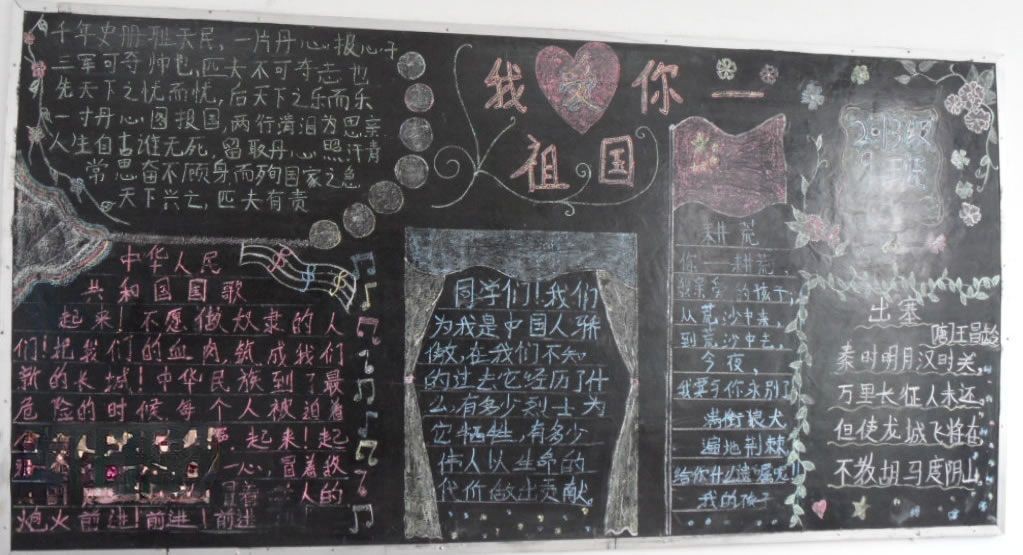 千年史册耻无名，一片丹心报
三军可夺帅也，匹夫不可夺志也
先天下之忧而忧，后天下之乐而乐
一寸丹心图报国，两行清泪为思亲
人生自古谁无死，留取丹心照汗青
常思奋不顾身而殉国家之急
天下兴亡，匹夫有责
我爱你—
祖国
中华人民
共和国国歌
起来！不愿做奴隶的人
们！把我们的血肉，筑成我们
新的长城！中华民族到了最
危险的时候每个人被迫着
起来！起
一心，冒着敌
冒着 人的
炮火前进！前进！前进
同学们！我们
为我是中国人骄
傲，在我们不知
的过去它经历了什
么，有多少烈士为
它牺牲，有多少
伟人以生命的
代价做出贡献。
耕荒
你——耕荒，
我亲爱的孩子，
从荒沙中来，
到荒沙中去。
今夜，
我要与你永别了
满街狼犬
遍地荆棘
给你什么遗嘱呢！
我的孩子
2013级
班
出塞
唐王昌龄
秦时明月汉时关，
万里长征人未还。
但使龙城飞将在
不教胡马度阴山